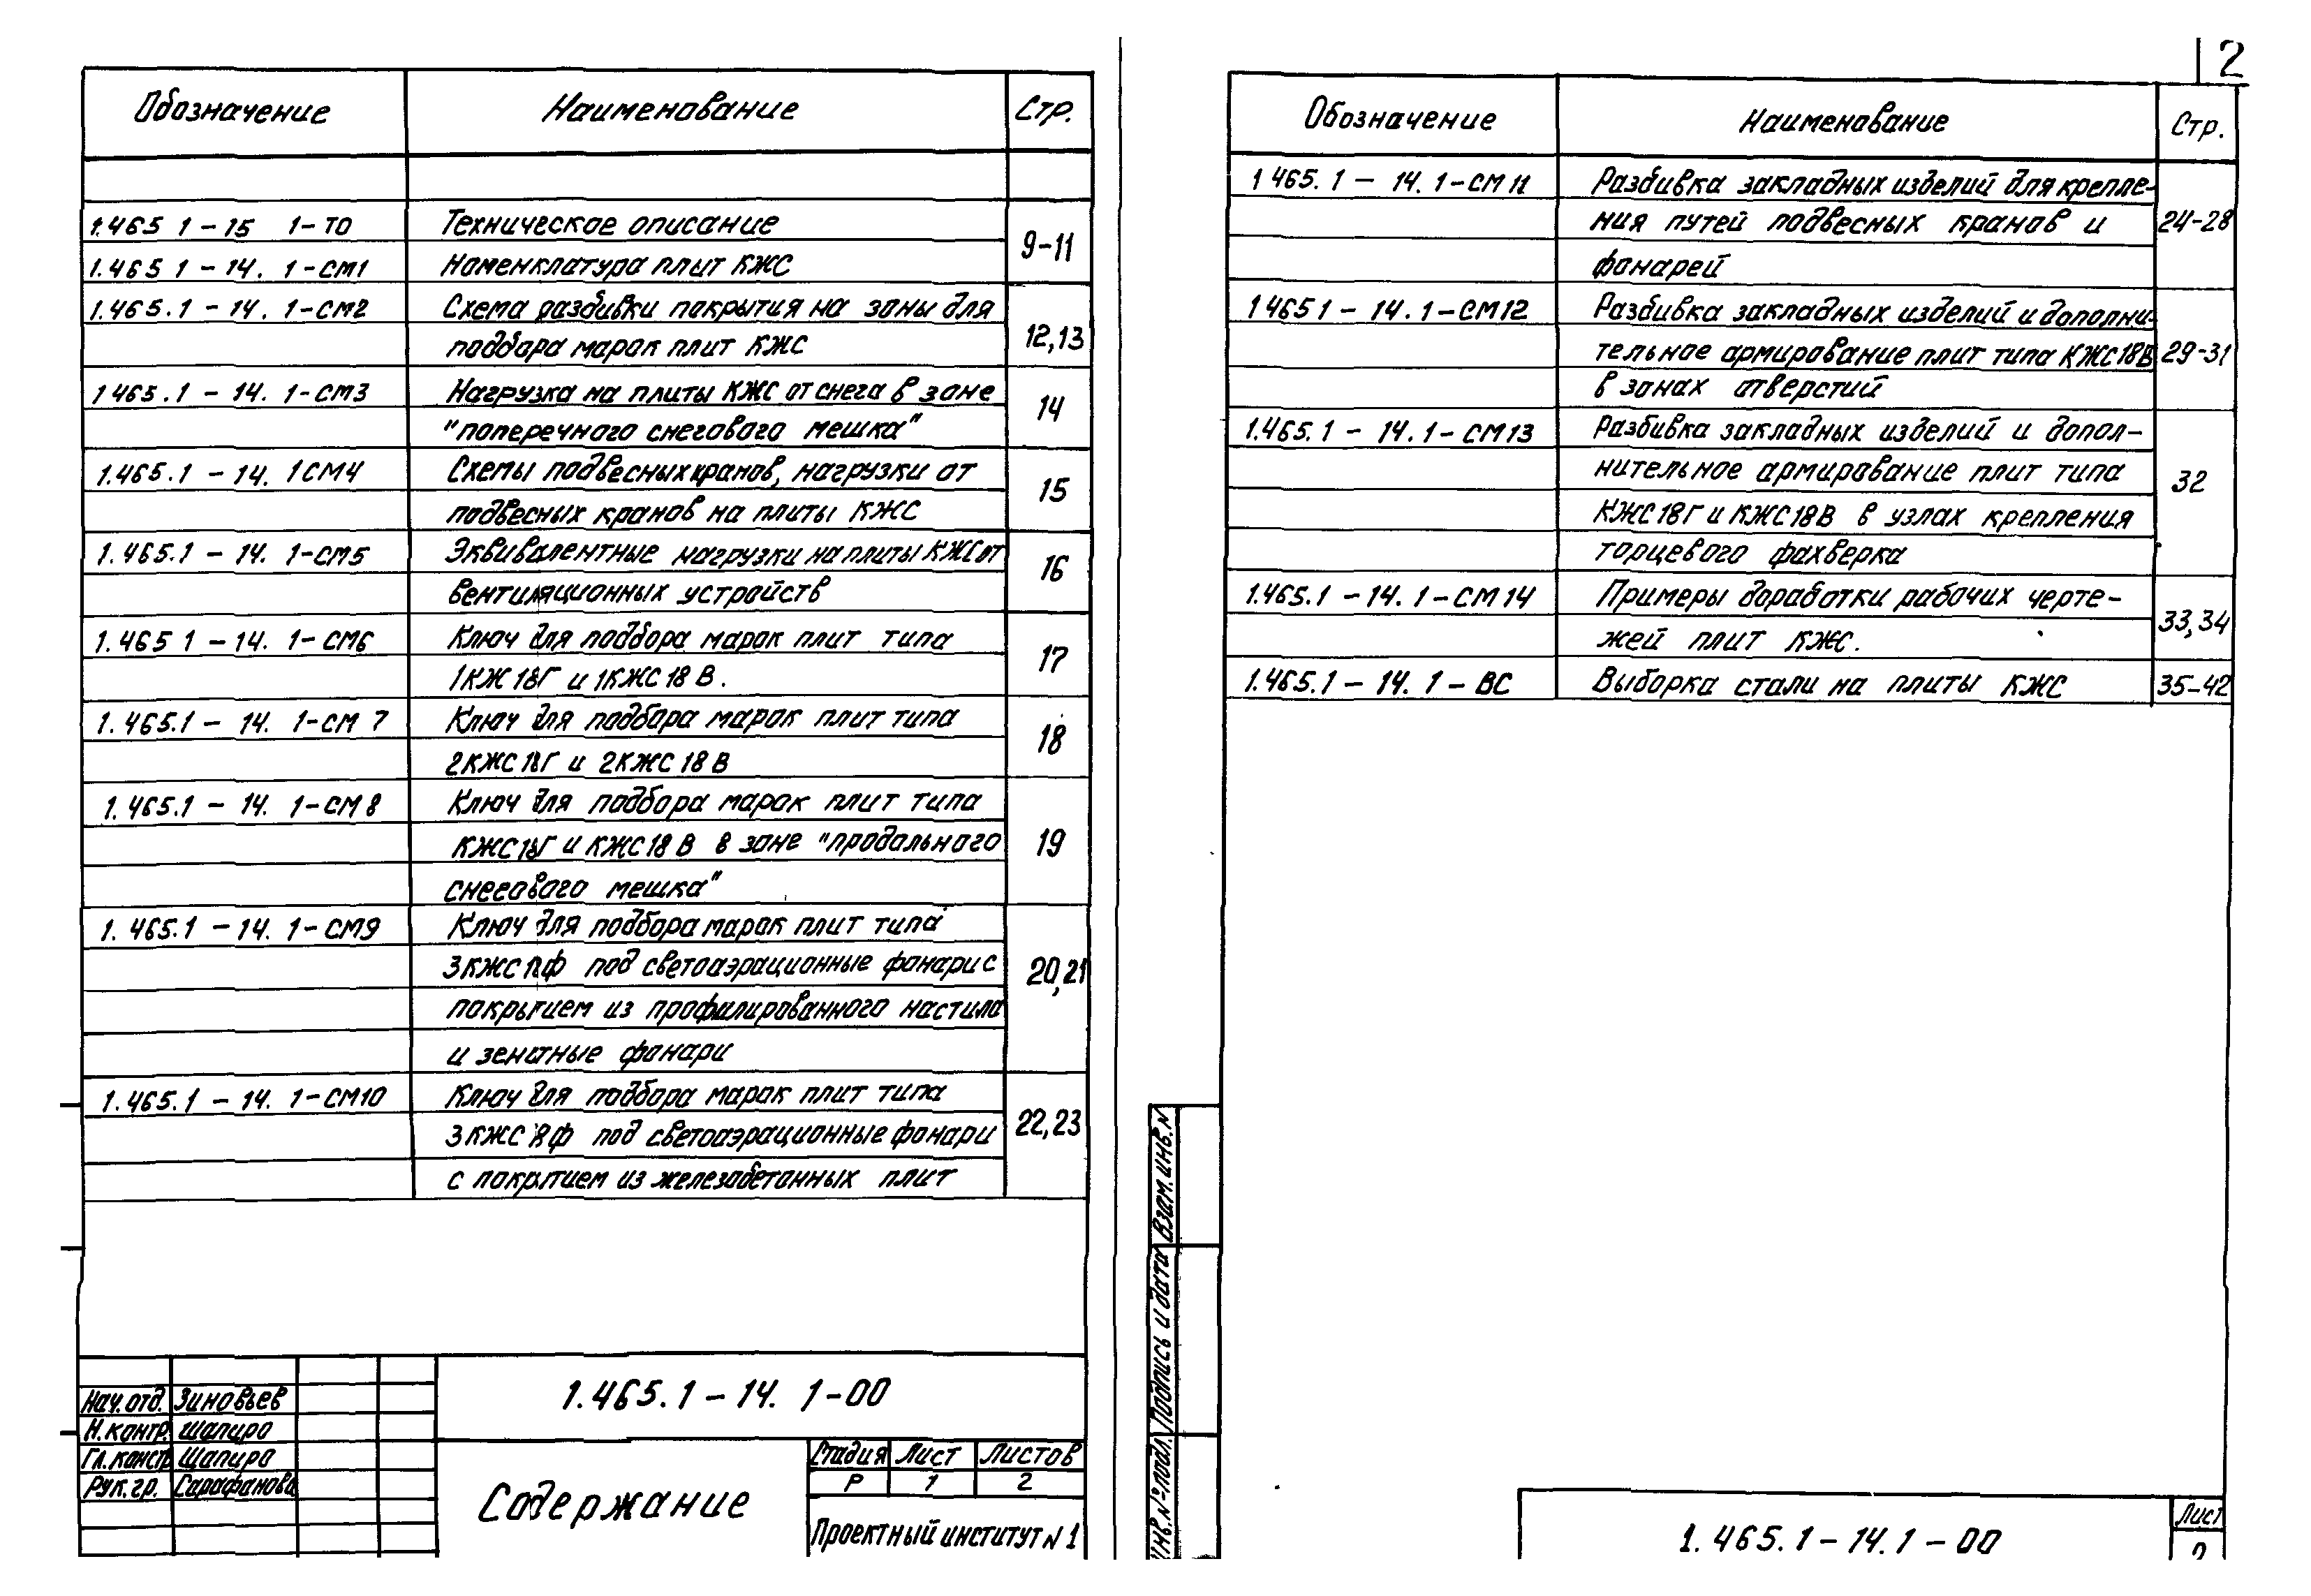 2
Обозначение Наименование Стр.
1.465 1 – 15 1 – ТО Техническое описание
9–11
1.465 1 – 14. 1 – СМ1 Номенклатура плит КЖС
1.465.1 – 14. 1 – СМ2 Схема разбивки покрытия на зоны для
подбора марок плит КЖС 12,13
1 465.1 – 14. 1 – СМ3 Нагрузка на плиты КЖС от снега в зоне
"поперечного снегового мешка" 14
1.465.1 – 14. 1СМ4 Схемы подвесных кранов, нагрузки от
подвесных кранов на плиты КЖС 15
1.465.1 – 14. 1 – СМ5 Эквивалентные нагрузки на плиты КЖС от
вентиляционных устройств 16
1.465 1 – 14. 1 – СМ6 Ключ для подбора марок плит типа
1КЖ18Г и 1КЖС18В. 17
1.465.1 – 14. 1 – СМ 7 Ключ для подбора марок плит типа
2КЖС18Г и 2КЖС18В 18
1.465.1 – 14. 1 – СМ8 Ключ для подбора марок плит типа
КЖС18Г и КЖС18В в зоне "продольного 19
снегового мешка"
1.465.1 – 14. 1 – СМ9 Ключ для подбора марок плит типа
под светоаэрационные фонари с 20,21
покрытием из профилированного настила
и зенитные фонари
1.465.1 – 14. 1 – СМ10 Ключ для подбора марок плит типа
под светоаэрационные фонари 22,23
с покрытием из железобетонных плит
Нач.отд. Зиновьев
Н.контр. Шапиро
Гл.констр Шапиро
Рук.гр. Сарафанова
1.465.1 – 14. 1–00
Содержание
Стадия Лист Листов
Р 1 2
Проектный институт N 1
Обозначение Наименование Стр.
1 465.1 – 14. 1 – СМ11 Разбивка закладных изделий для крепле-
ния путей подвесных кранов и 24–28
фонарей
1 465 1 – 14. 1 – СМ12 Разбивка закладных изделий и дополни-
тельное армирование плит типа КЖС18В 29–31
в зонах отверстий
1.465.1 – 14. 1 – СМ13 Разбивка закладных изделий и допол-
нительное армирование плит типа 32
КЖС18Г и КЖС18В в узлах крепления
торцевого фахверка
1.465.1 – 14. 1 – СМ14 Примеры доработки рабочих черте-
жей плит КЖС. 33,34
1.465.1 – 14. 1 – ВС Выборка стали на плиты КЖС 35–42
Взам.инв.N
Подпись и дата
Инв.№подл.
1.465.1 – 14. 1 – 00
Лист
2